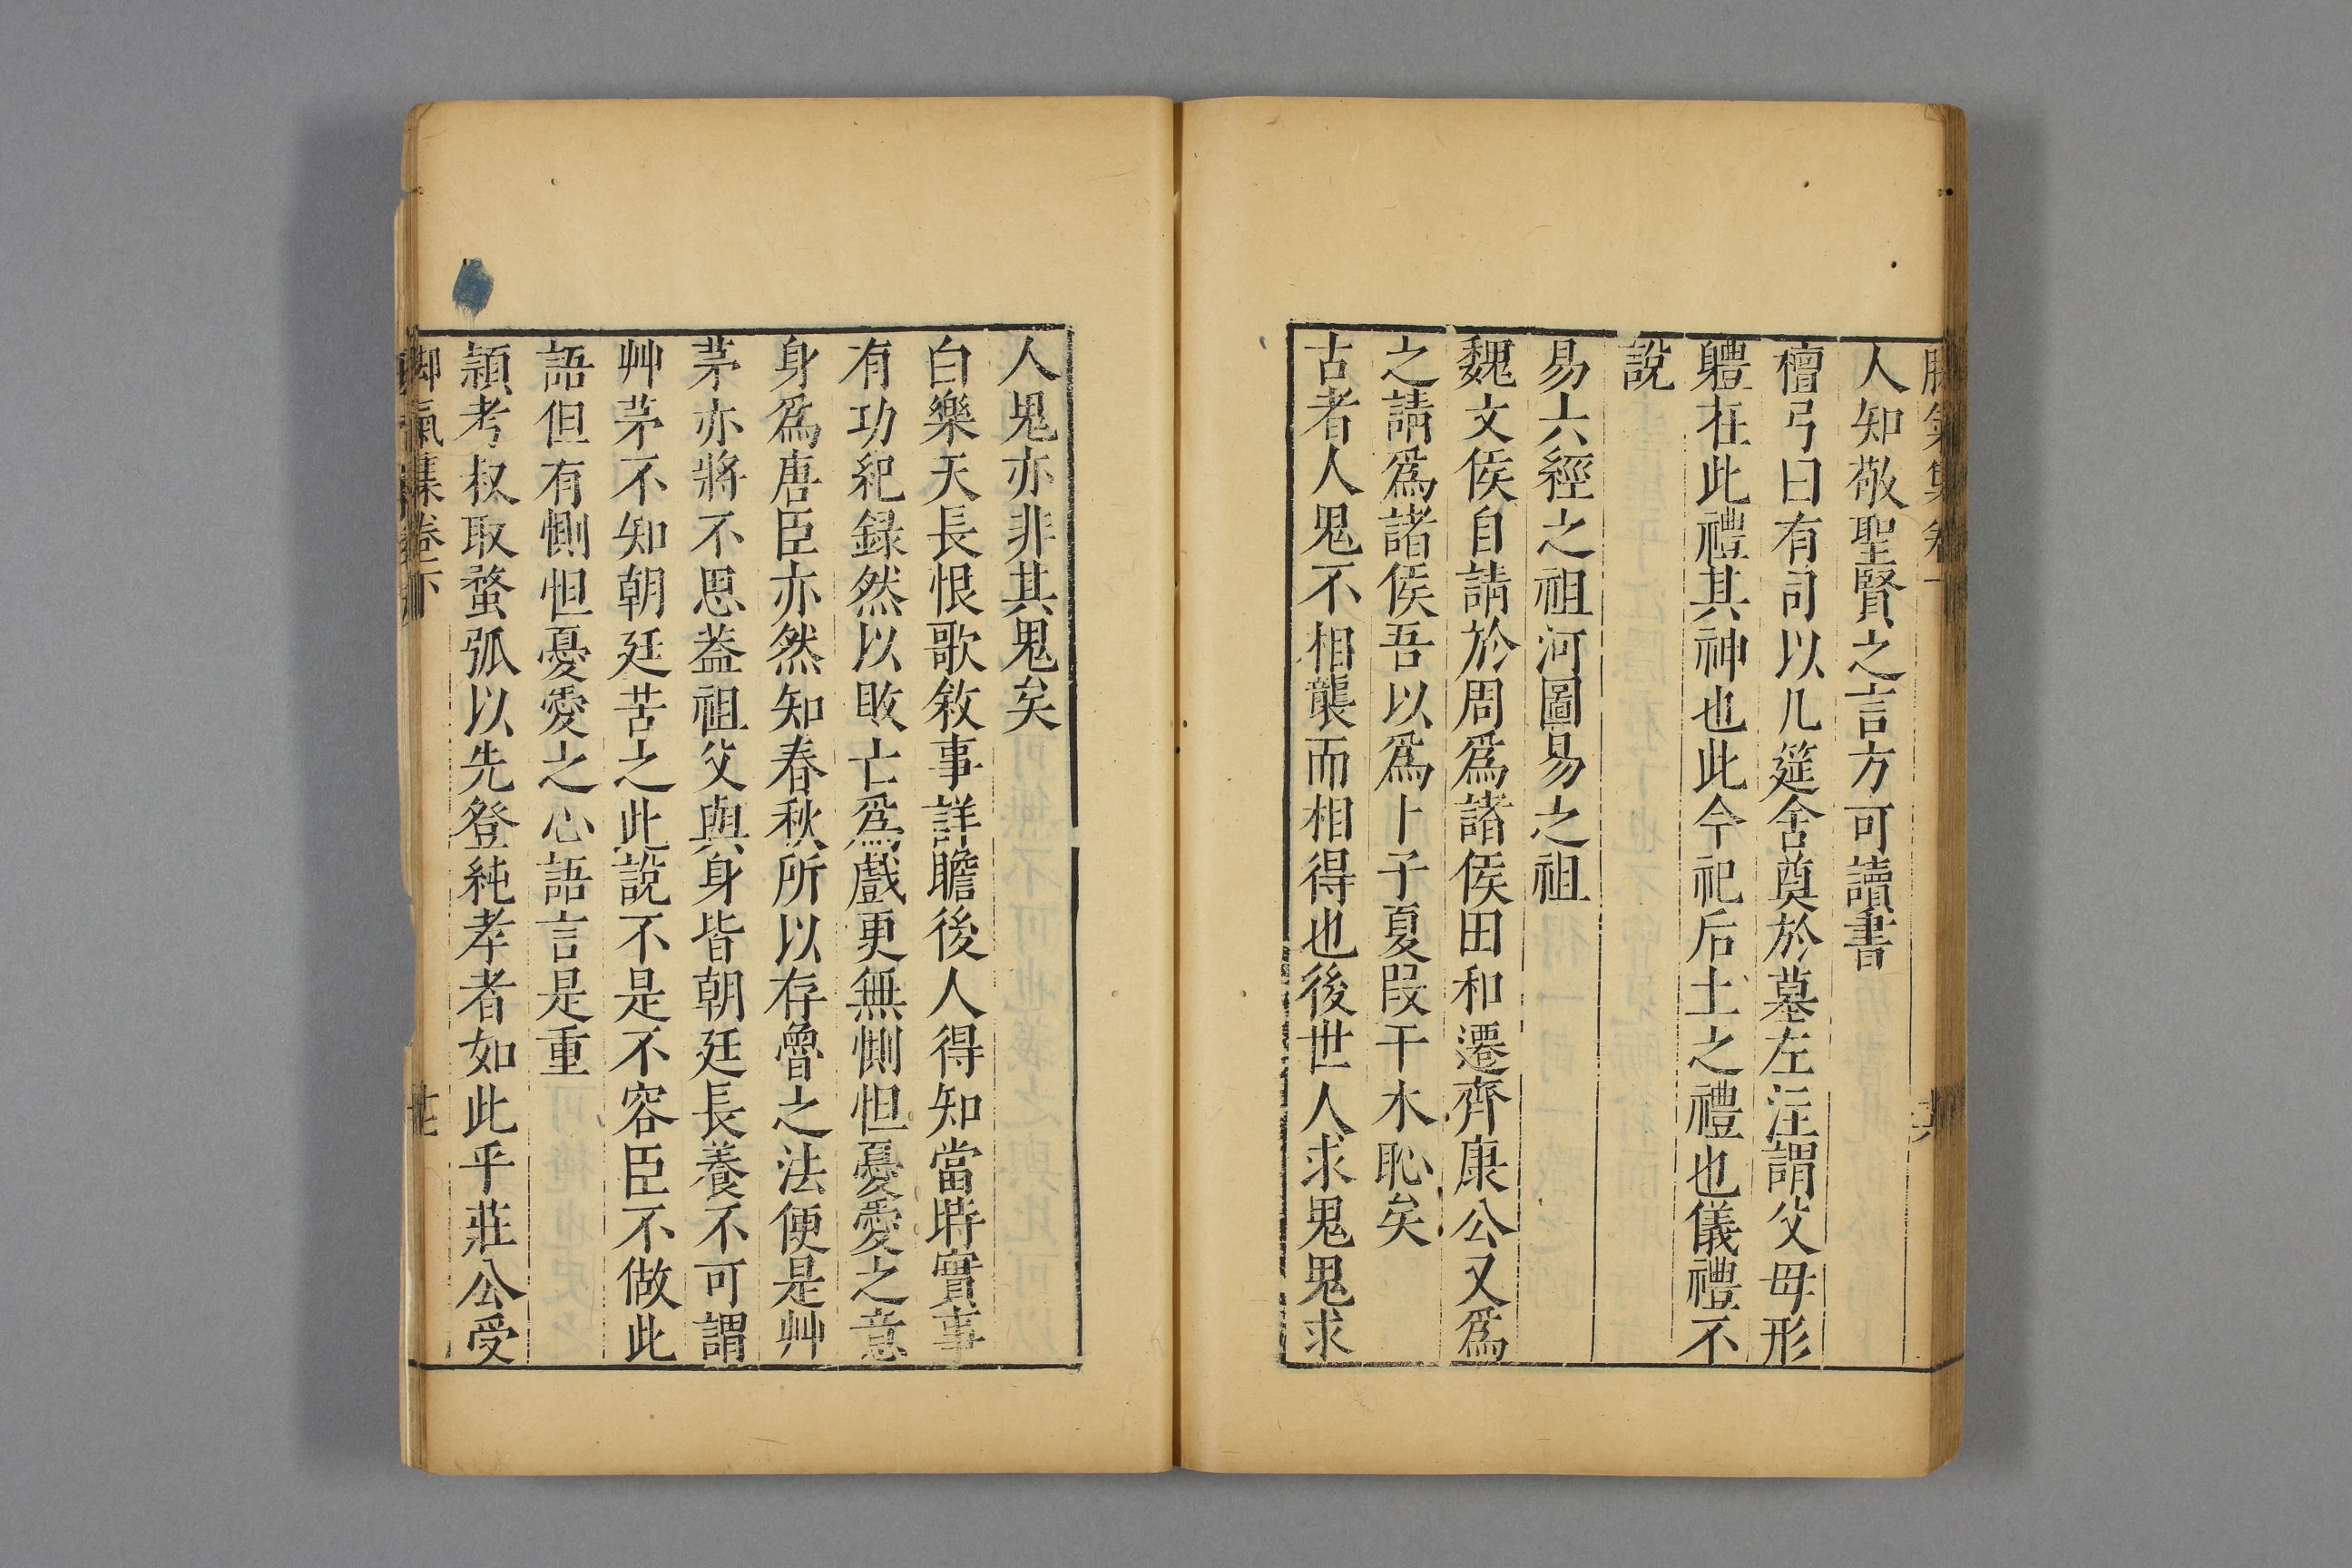 人知敬聖賢之言方可讀書
檀弓曰有司以几筵舍奠於墓左注謂父母形
軆在此禮其神也此今祀后土之禮也儀禮不
說
易六經之祖河圖易之祖
魏文侯自請於周爲諸侯田和遷齊康公又爲
之請爲諸侯吾以爲卜子夏段干木恥矣
古者人鬼不相襲而相得也後世人求鬼鬼求
人鬼亦非其鬼矣
白樂天長恨歌敘事詳贍後人得知當時實事
有功紀錄然以敗亡爲戲更無惻怛憂愛之意
身爲唐臣亦然知春秋所以存魯之法便是艸
茅亦將不思葢祖父與身皆朝廷長養不可謂
艸茅不知朝廷苦之此說不是不容臣不做此
語但有惻怛憂愛之心語言是重
頴考叔取蝥弧以先登純孝者如此乎莊公受
脚氣集卷下